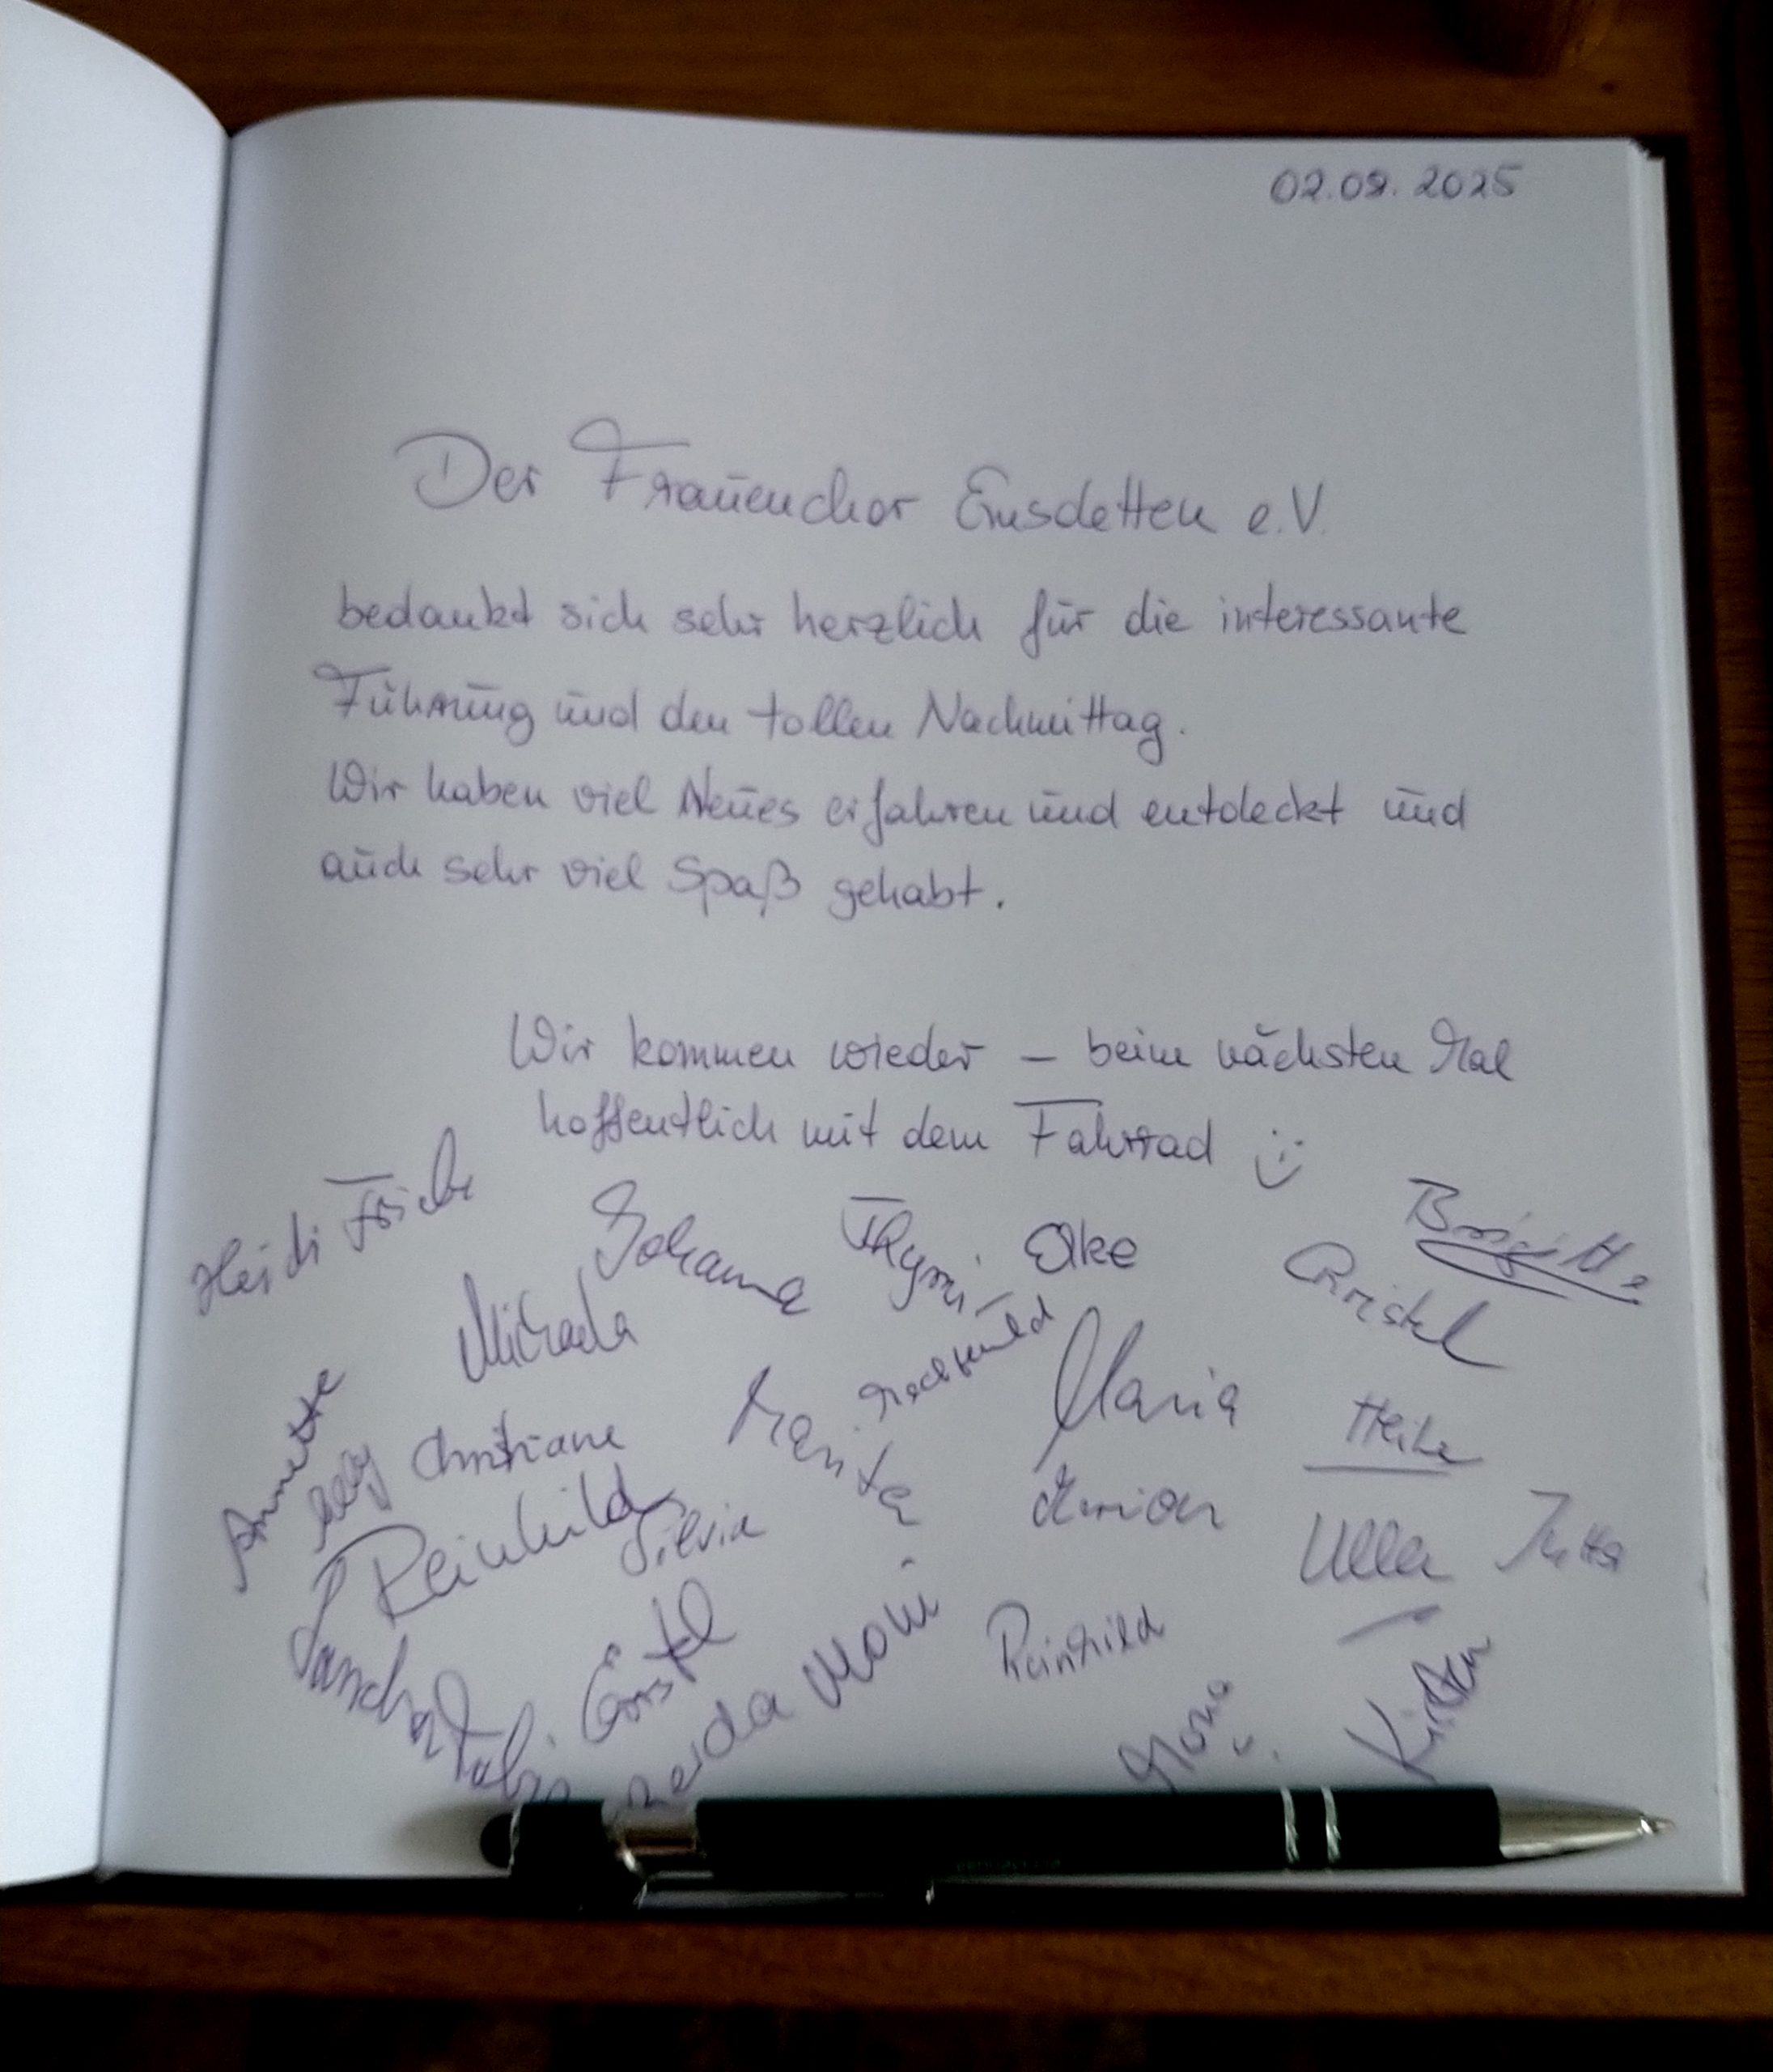 02.09.2025
Der Frauenchor Emsdetten e.V.
bedankt sich sehr herzlich für die interessante
Führung und den tollen Nachmittag.
Wir haben viel Neues erfahren und entdeckt und
auch sehr viel Spaß gehabt.
Wir kommen wieder – beim nächsten Mal
hoffentlich mit dem Fahrrad
Heidi
Johanna
Elke
Brigitte
Christel
Michaela
Mechthild
Maria
Heike
Annette
Christiane
Marita
Reinhild
Silvia
Marion
Ulla
Jutta
Sandra
Moni
Reinhild
Mona
Kirsten